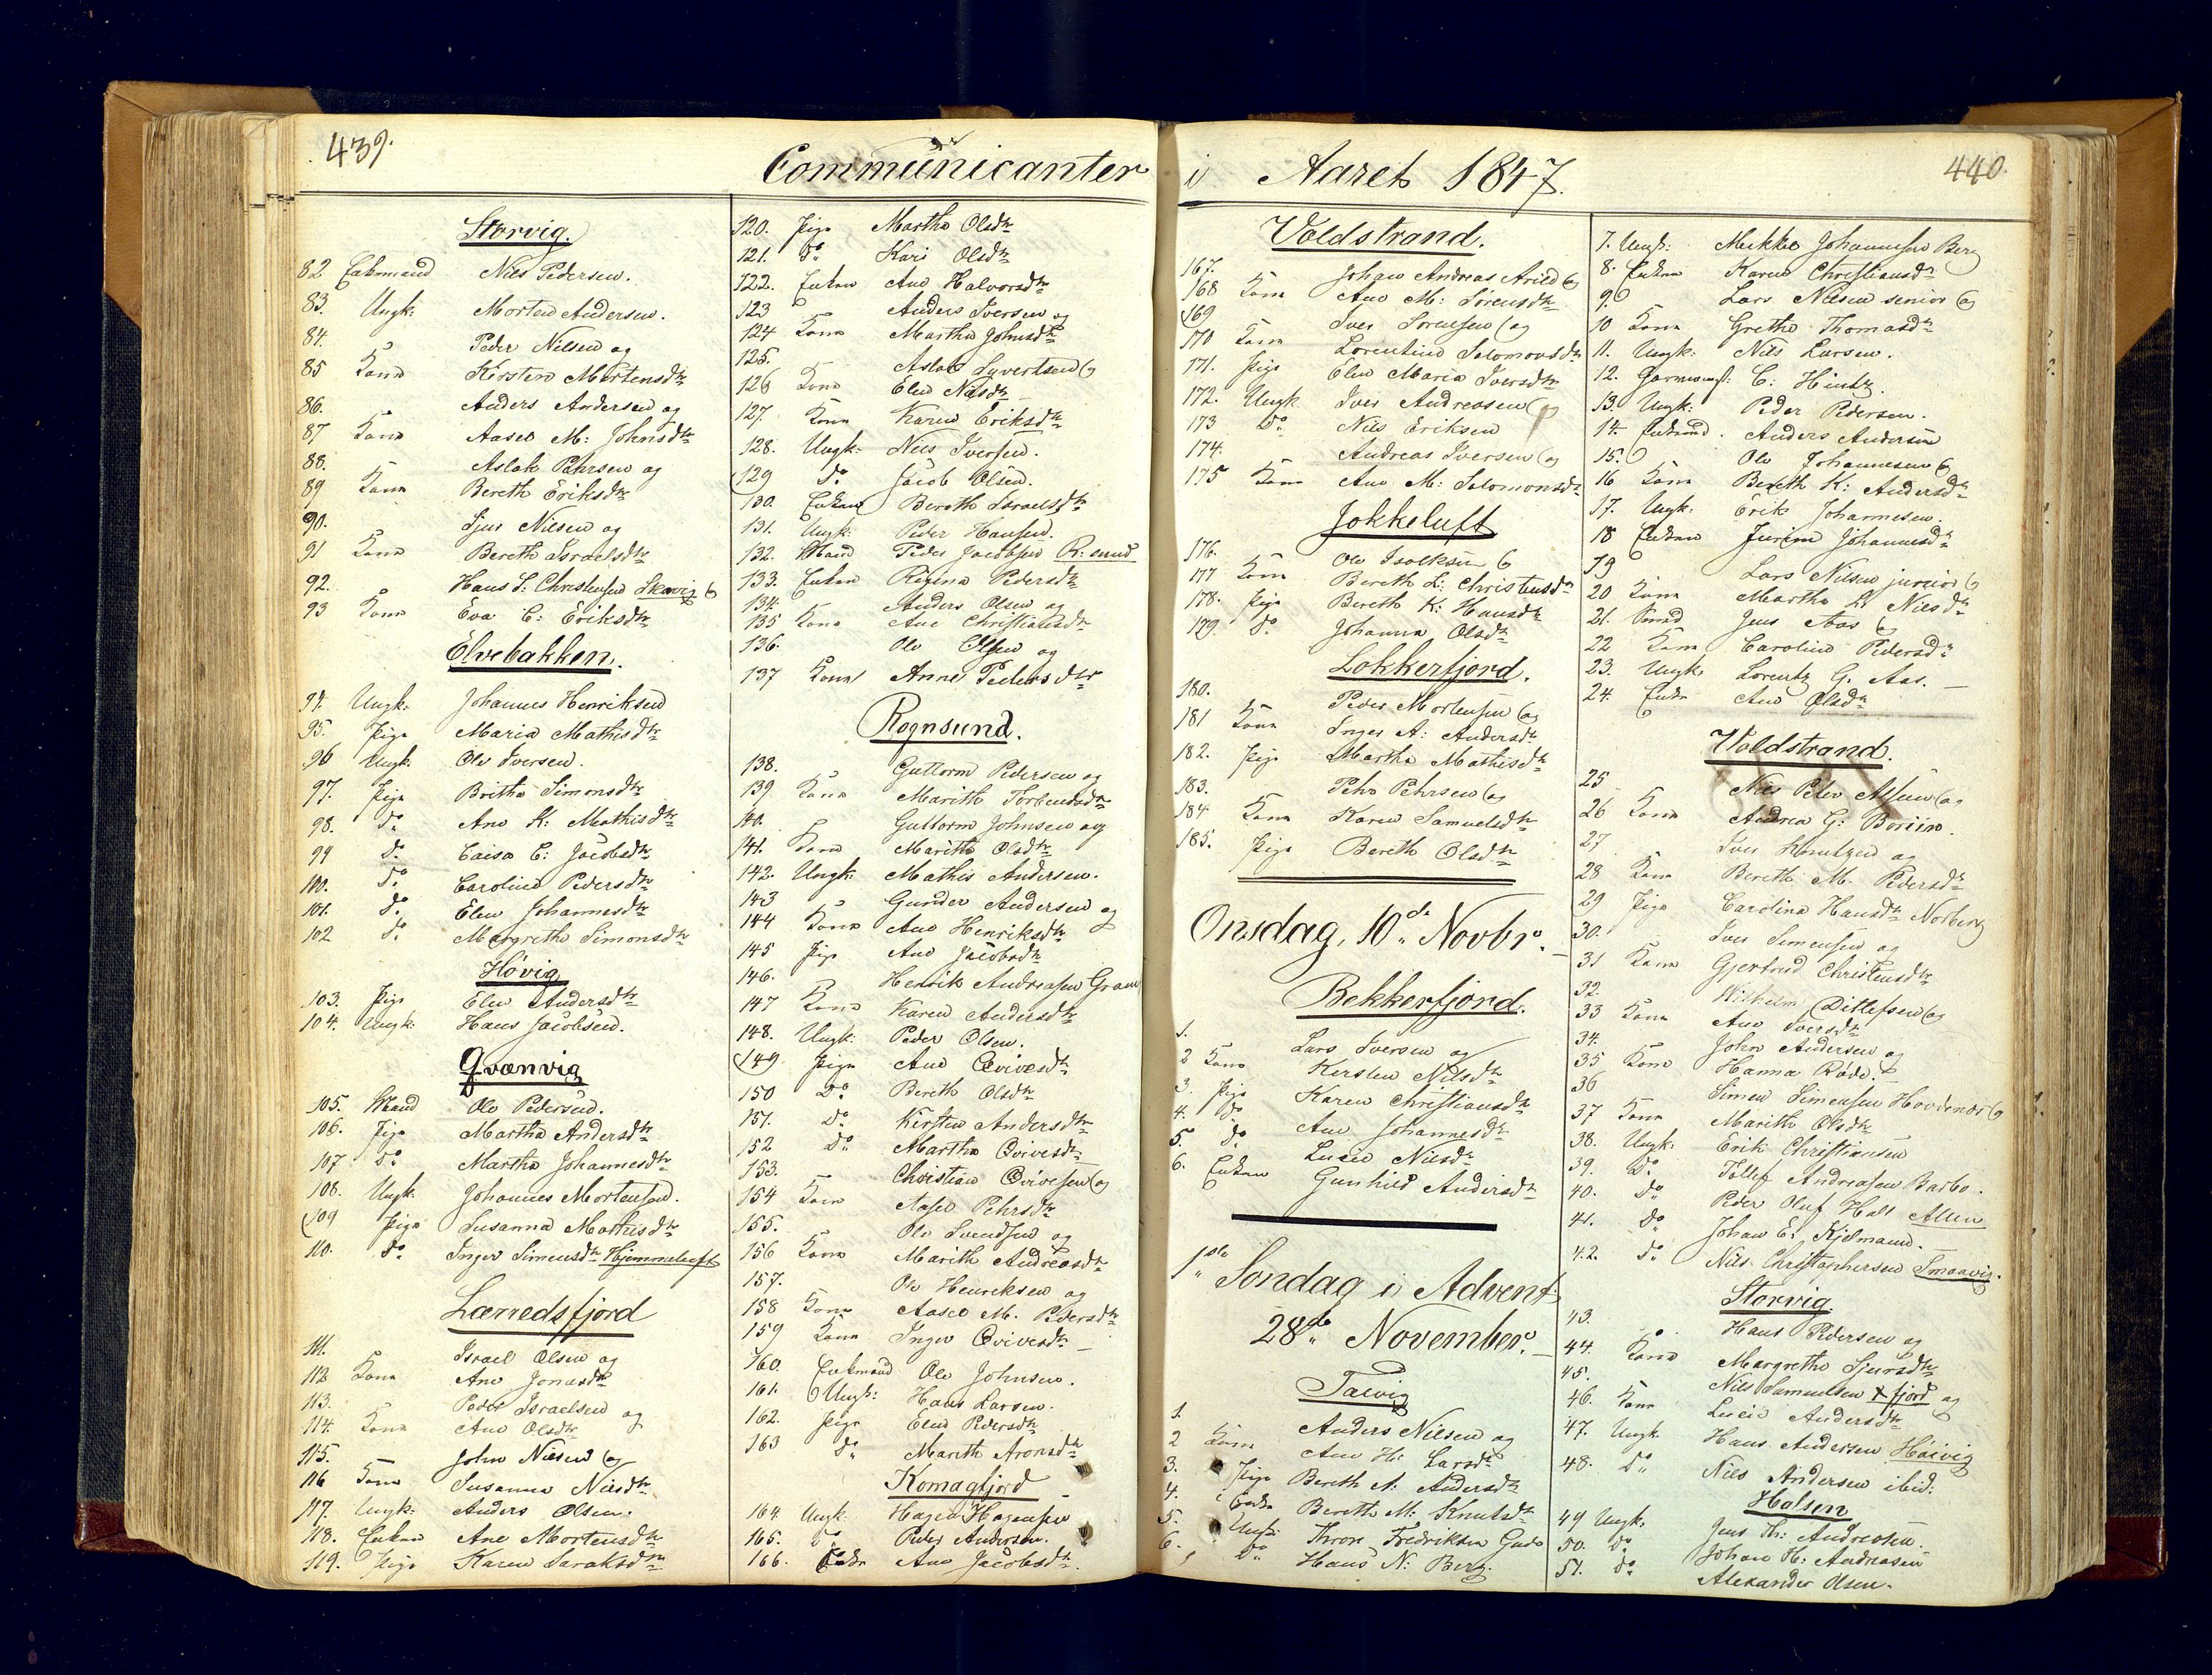 439.
Communicanter
Storvig.
82 Enkemand Nils Pedersen.
83. Ungk: Morten Andersen.
84. Peder Nilsen og
85 Kone Kirsten Mortensdtr
86. Anders Andersen og
87 Kone Aase M: Johnsdtr
88. Aslak Pehrsen og
89 Kone Bereth Eriksdtr
90. Sjur Nilsen og
91 Kone Bereth Israelsdtr
92. Hans S: Christensen Skavig og
93 Kone Eva C: Eriksdtr
Elvebakken.
94. Ungk: Johannes Henriksen
95. Pige Maria Mathisdtr
96 Ungk: Ole Iversen.
97. Pige Britha Simonsdtr
98. Do Ane K: Mathisdtr
99 Do Caisa C: Jacobsdtr
100. Do Caroline Pedersdtr
101. Do Elen Johannesdtr
102 Do Margrethe Simonsdtr
Høvig
103. Pige Elen Andersdtr
104. Ungk: Hans Jacobsen.
Qvænvig
105. Mand Ole Pedersen.
106. Pige Martha Andersdtr
107 Do Martha Johannesdtr
108. Ungk. Johannes Mortensen.
109 Pige Susanna Mathisdtr
110. Do Inger Simensdtr Hjemmeluft
Lærredsfjord
111. Israel Olsen og
112 Kone Ane Jonasdtr
113. Peder Israelsen og
114. Kone Ane Olsdtr
115. John Nilsen og
116 Kone Susanna Nilsdtr
117. Ungk: Anders Olsen.
118. Enken Ane Mortensdtr
119. Pige Karen Saraksdtr
120. Pige Martha Olsdtr
121. Do Kari Olsdtr
122. Enken Ane Halvorsdtr
123 Anders Iversen og
124 Kone Martha Johnsdtr
125. Aslak Syvertsen og
126 Kone Elen Nilsdtr
127. Kone Karen Eriksdtr
128. Ungk: Nils Iversen.
129 Do Jacob Olsen.
130. Enken Bereth Israelsdtr
131. Ungk: Peder Hansen.
132. Mand Peder Jacobsen R:sund
133. Enken Regina Pedersdtr
134. Anders Olsen og
135 Kone Ane Christiansdtr
136. Ole Olsen og
137 Kone Anne Pedersdtr
Rognsund.
138. Guttorm Pedersen og
139 Kone Marith
140. Guttorm Johnsen og
141. Kone Marith Olsdtr
142. Ungk: Mathis Andersen.
143 Gunder Andersen og
144 Kone Ane Henriksdtr
145 Pige Ane Jacobsdtr
146. Henrik Andreasen Gram
147 Kone Karen Andersdtr
148. Ungk: Peder Olsen.
149 Pige Ane Qvivesdtr
150 Do Bereth Olsdtr
151. Do Kirsten Andersdtr
152 Do Martha Qvivesdtr
153. Christian Qvivesen og
154 Kone Aase Pehrsdtr
155. Ole Svendsen og
156 Kone Marith Andreasdtr
157. Ole Henriksen og
158 Kone Aase M. Pedersdtr
159 Kone Inger Qvivesdtr
160. Enkemand Ole Johnsen.
161. Ungk: Hans Larsen.
162. Pige Elen Pedersdtr
163 Do Marith Aronsdtr
Komagfjord
164 Ungk: Hagen Hagensen
165. Do Peder Andersen.
166. Enke Ane Jacobsdtr.
440.
i Aaret 1847.
Voldstrand.
167. Johan Andreas Arild og
168 Kone Ane M: Sørensdtr
169 Iver Sørensen og
170 Kone Lorentine Salomonsdtr
171. Pige Elen Maria Iversdtr
172. Ungk Iver Andreasen
173 Do Nils Eriksen
174. Andreas Iversen og
175 Kone Ane M: Salomonsdtr
Jokkeluft
176. Ole Isaksen og
177 Kone Bereth L: Christensdtr
178. Pige Bereth K: Hansdtr
179. Do Johanna Olsdtr
Lokkerfjord.
180. Peder Mortensen og
181 Kone Inger A: Andersdtr
182. Pige Martha Mathisdtr
183. Pehr Pehrsen og
184 Kone Karen Samuelsdtr
185. Pige Bereth Olsdtr
Onsdag, 10de Novbr.
Bekkerfjord.
1. Lars Iversen og
2 Kone Kirsten Nilsdtr
3. Pige Karen Christiansdtr
4. Do Ane Johannesdtr
5. Do Lucie Nilsdtr
6. Enken Gunhild Andersdtr
1ste Søndag i Advent
28de November.
Talvig
1. Anders Nilsen og
2 Kone Ane H: Larsdtr
3. Pige Bereth A: Andersdtr
4. Enke Bereth M: Knutsdtr
5. Ungk: Thron Fredriksen
6. Do Hans N: Berg.
7. Ungk: Mikkel Johannesen Berg
8. Enken Karen Christiansdtr
9. Lars Nilsen senior og
10 Kone Grethe Thomasdtr
11. Ungk: Nils Larsen.
12. C: Hintz.
13. Ungk: Peder Pedersen.
14. Enkemd. Anders Andersen
15. Ole Johannesen og
16 Kone Bereth K: Andersdtr
17. Ungk: Erik Johannesen.
18 Enken Johannesdtr
19 Lars Nilsen junior og
20 Kone Martha L: Nilsdtr
21. Jens Aas og
22 Kone Caroline Pedersdtr
23. Ungk: Lorentz G. Aas.
24. Enke Ane Olsdtr
Voldstrand.
25 Nils Peter og
26 Kone Andrea G:
27 Iver Knutzen og
28 Kone Bereth M. Pedersdtr
29 Pige Carolina Hansdtr Norberg
30. Iver Simensen og
31 Kone Gjertrud Christensdtr
32. Wilhelm Ditlefsen og
33 Kone Ane Iversdtr
34. John Andersen og
35 Kone Hanna Røde.
36 Simen Simensen og
37 Kone Marith Olsdtr
38. Ungk: Erik Christiansen
39. Do Tollef Andreasen Barbo.
40. Do Peder Oluf Hall
41. Do Johan E: Kjelmand.
42. Do Nils Christophersen Smaavig.
Storvig.
43. Hans Pedersen og
44. Kone Margrethe Sjursdtr
45. Nils Samuelsen fjord og
46. Kone Lucie Andersdtr
47. Ungk. Hans Andersen Høivig
48. Do Nils Andersen ibid:
Halsen
49 Ungk: Jens Andreasen.
50. Do Johan H: Andreasen
51. Do Alexander Olsen.